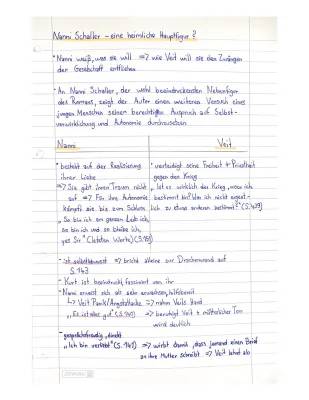 Nanni Schaller – eine heimliche Hauptfigur?
• Nanni weiß, was sie will => wie Veit will sie den Zwängen
der Gesellschaft entfliehen
• An Nanni Schaller, der wohl beeindruckendsten Nebenfigur
des Romans, zeigt der Autor einen weiteren Versuch eines
jungen Menschen seinen berechtigten Anspruch auf Selbst-
verwirklichung und Autonomie durchzusetzen
Nanni Veit
• besteht auf der Realisierung
ihrer Liebe
=> Sie gibt ihren Traum nicht
auf => Für ihre Autonomie
kämpft sie bis zum Schluss
„So bin ich am ganzen Leib ich,
so bin ich und so bleibe ich,
yes Sir" (letzten Worte)
• verteidigt seine Freiheit + Privatheit
gegen den Krieg
„Ist es wirklich der Krieg, was mich
bestimmt bin? Was ich nicht eigent-
lich zu etwas anderem bestimmt?"
• ist selbstbewusst => bricht alleine zur Drachenwand auf
S. 143
• Kurt ist beeindruckt, fasziniert von ihr
• Nanni erweist sich als sehr erwachsen, hilfsbereit
↳ Veit Panik/Angstattacke => nahm Veits Hand
„Es ist alles gut" => beruhigt Veit + mütterlicher Ton
wird deutlich
• gesprächsfreudig, direkt
„Ich bin verliebt" => wirbt damit, dass jemand einen Brief
an ihre Mutter schreibt => Veit lehnt ab